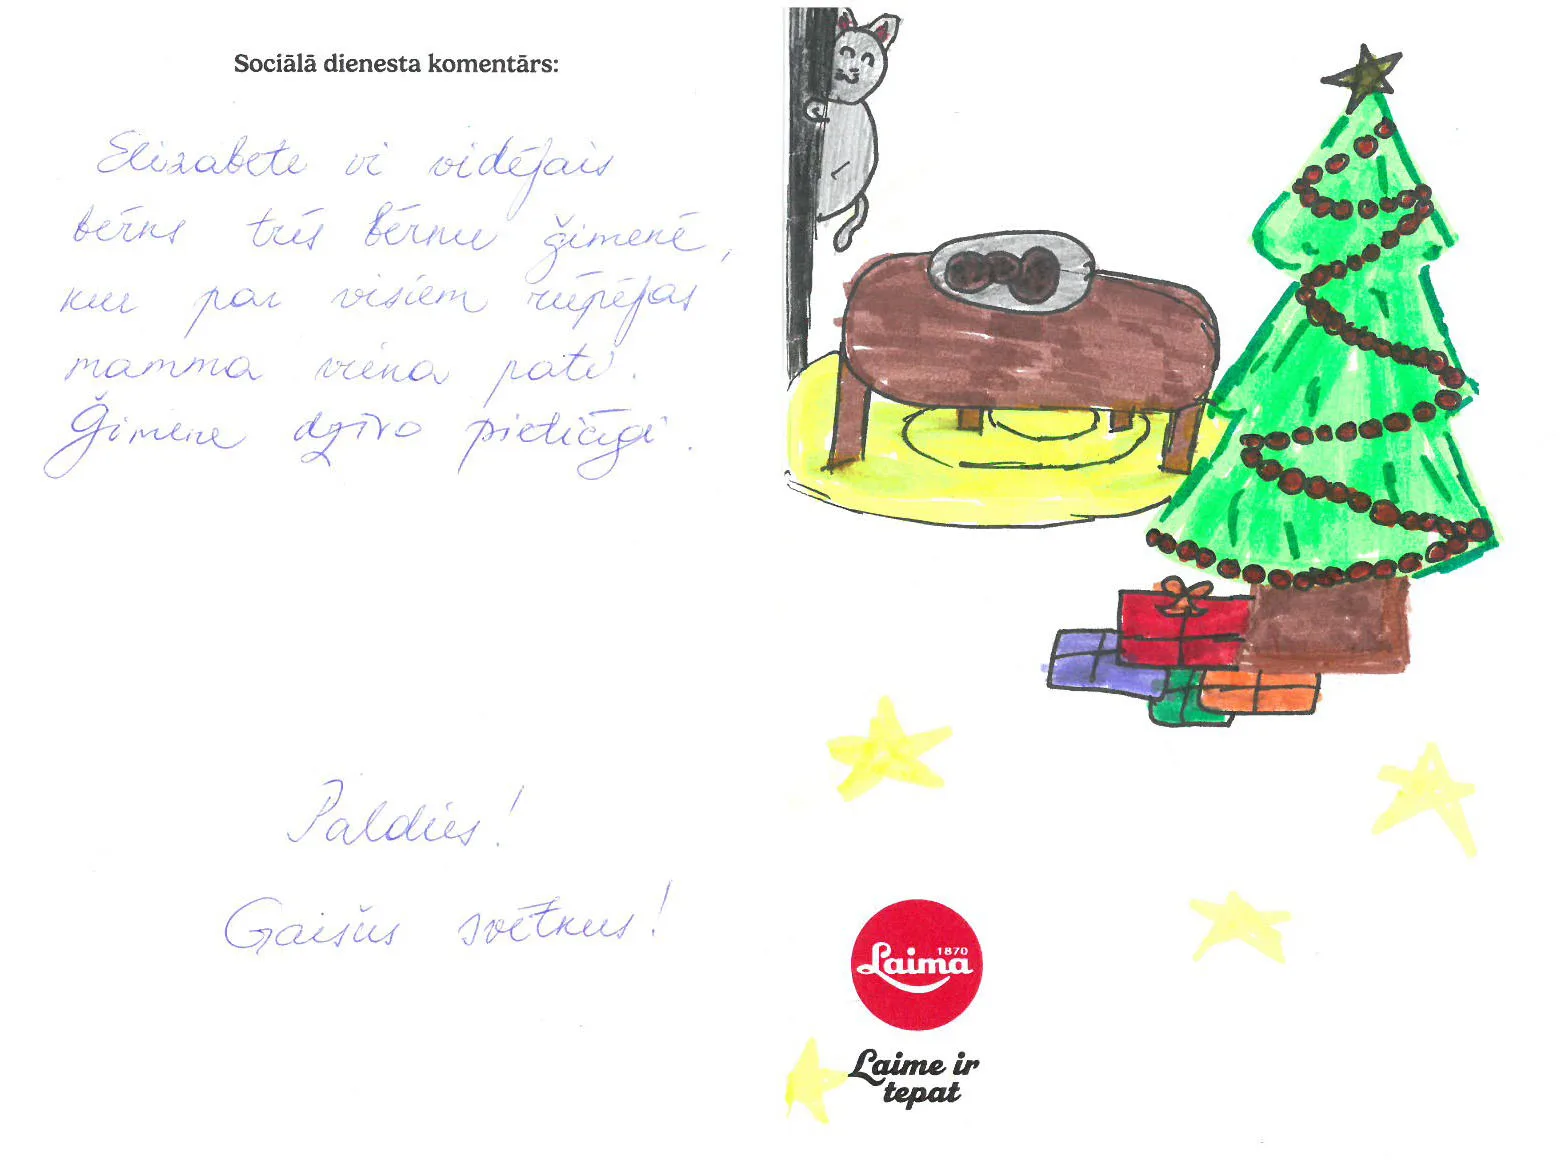 Sociālā dienesta komentārs:
Elizabete ir vidējais
bērns trīs bērnu ģimenē,
kur par visiem rūpējas
mamma viena pati.
Ģimene dzīvo pieticīgi.
Paldies!
Gaišus svētkus!
1870
Laima
Laime ir
tepat